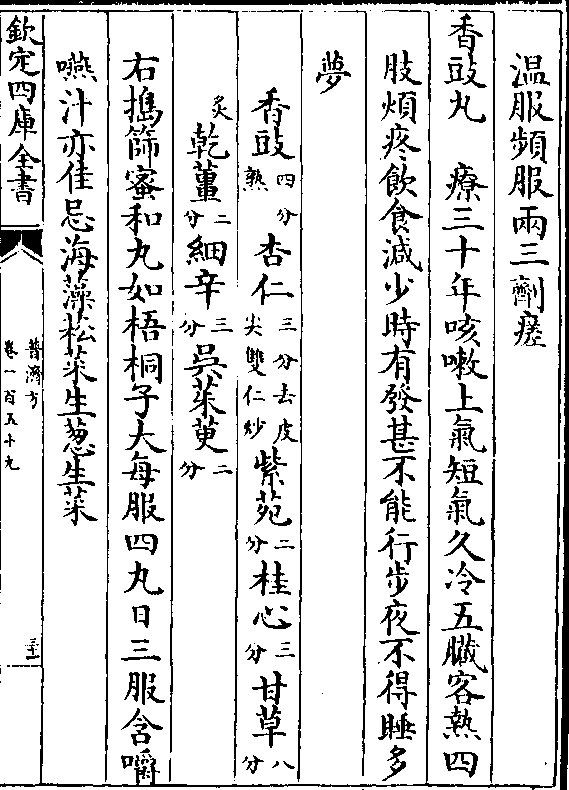 温服頻服兩三劑瘥
香豉丸　療三十年咳嗽上氣短氣久冷五臟客熱四
肢煩疼飲食減少時有發甚不能行步夜不得睡多
夢
香豉四分熟杏仁三分去皮尖雙仁炒紫苑二分桂心三分甘草八分
炙乾薑二分細辛三分吳茱萸二分
右搗篩蜜和丸如梧桐子大每服四丸日三服含嚼
嚥汁亦佳忌海藻菘菜生葱生菜
欽定四庫全書
普濟方
卷一百五十九